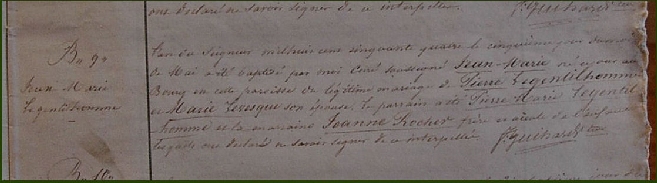 ont déclaré ne savoir signer de ce interpellés. J. Guihard
B. 9e
Jean Marie
Legentilhomme
L'an du Seigneur mil huit cent cinquante quatre le cinquième jour du mois
de Mai a été baptisé par moi Curé soussigné Jean-Marie né ce jour au
Bourg en cette paroisse de légitime mariage de Pierre Legentilhomme
et Marie Levesque son épouse, le parrain a été Pierre Marie Legentil
homme et la marraine Jeanne Rocher frère et aieule de l'enfant
lesquels ont déclaré ne savoir signer de ce interpellés J. Guihard
B. 10e